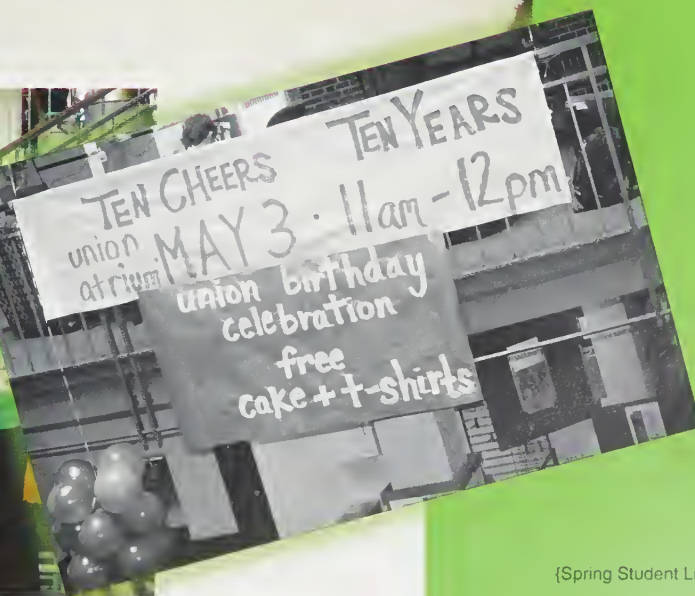 TEN CHEERS TEN YEARS
union atrium MAY 3 · 11am - 12pm
union birthday
celebration
free
cake + t-shirts
{Spring Student